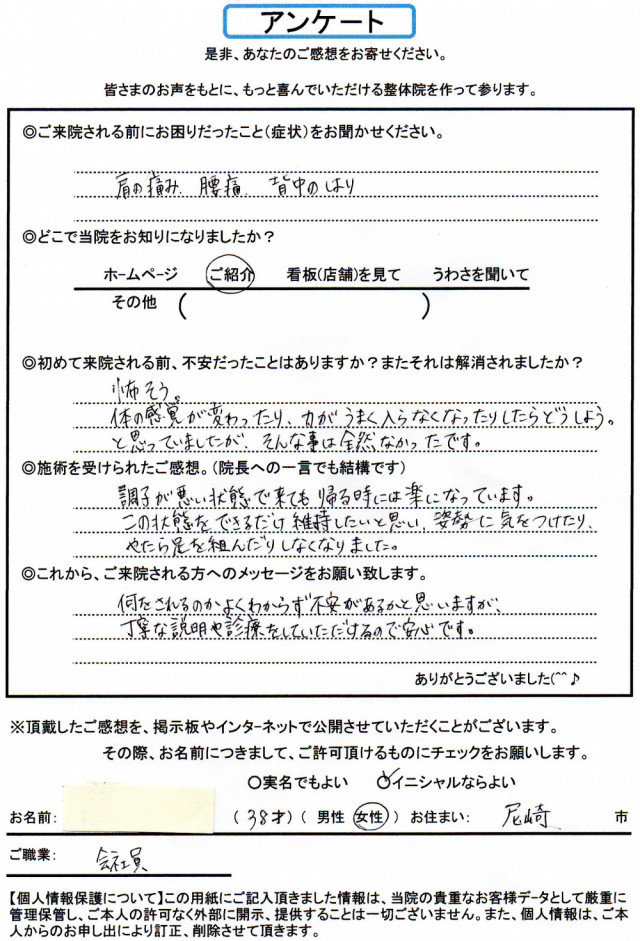 アンケート
是非、あなたのご感想をお寄せください。
皆さまのお声をもとに、もっと喜んでいただける整体院を作って参ります。
◎ご来院される前にお困りだったこと(症状)をお聞かせください。
肩の痛み、腰痛、背中のはり
◎どこで当院をお知りになりましたか？
ホームページ ご紹介 看板(店舗)を見て うわさを聞いて
その他 ( )
◎初めて来院される前、不安だったことはありますか？またそれは解消されましたか？
怖そう。
体の感覚が変わったり、力がうまく入らなくなったりしたらどうしよう。
と思っていましたが、そんな事は全然なかったです。
◎施術を受けられたご感想。(院長への一言でも結構です)
調子が悪い状態で来ても帰る時には楽になっています。
この状態をできるだけ維持したいと思い、姿勢に気をつけたり、
やたら足を組んだりしなくなりました。
◎これから、ご来院される方へのメッセージをお願い致します。
何をされるのかよくわからず不安があるかと思いますが、
丁寧な説明や診療をしていただけるので安心です。
ありがとうございました(^^♪
※頂戴したご感想を、掲示板やインターネットで公開させていただくことがございます。
その際、お名前につきまして、ご許可頂けるものにチェックをお願いします。
○実名でもよい ○イニシャルならよい
お名前: (38才) (男性 女性) お住まい: 尼崎 市
ご職業: 会社員
【個人情報保護について】この用紙にご記入頂きました情報は、当院の貴重なお客様データとして厳重に
管理保管し、ご本人の許可なく外部に開示、提供することは一切ございません。また、個人情報は、ご本
人からのお申し出により訂正、削除させて頂きます。